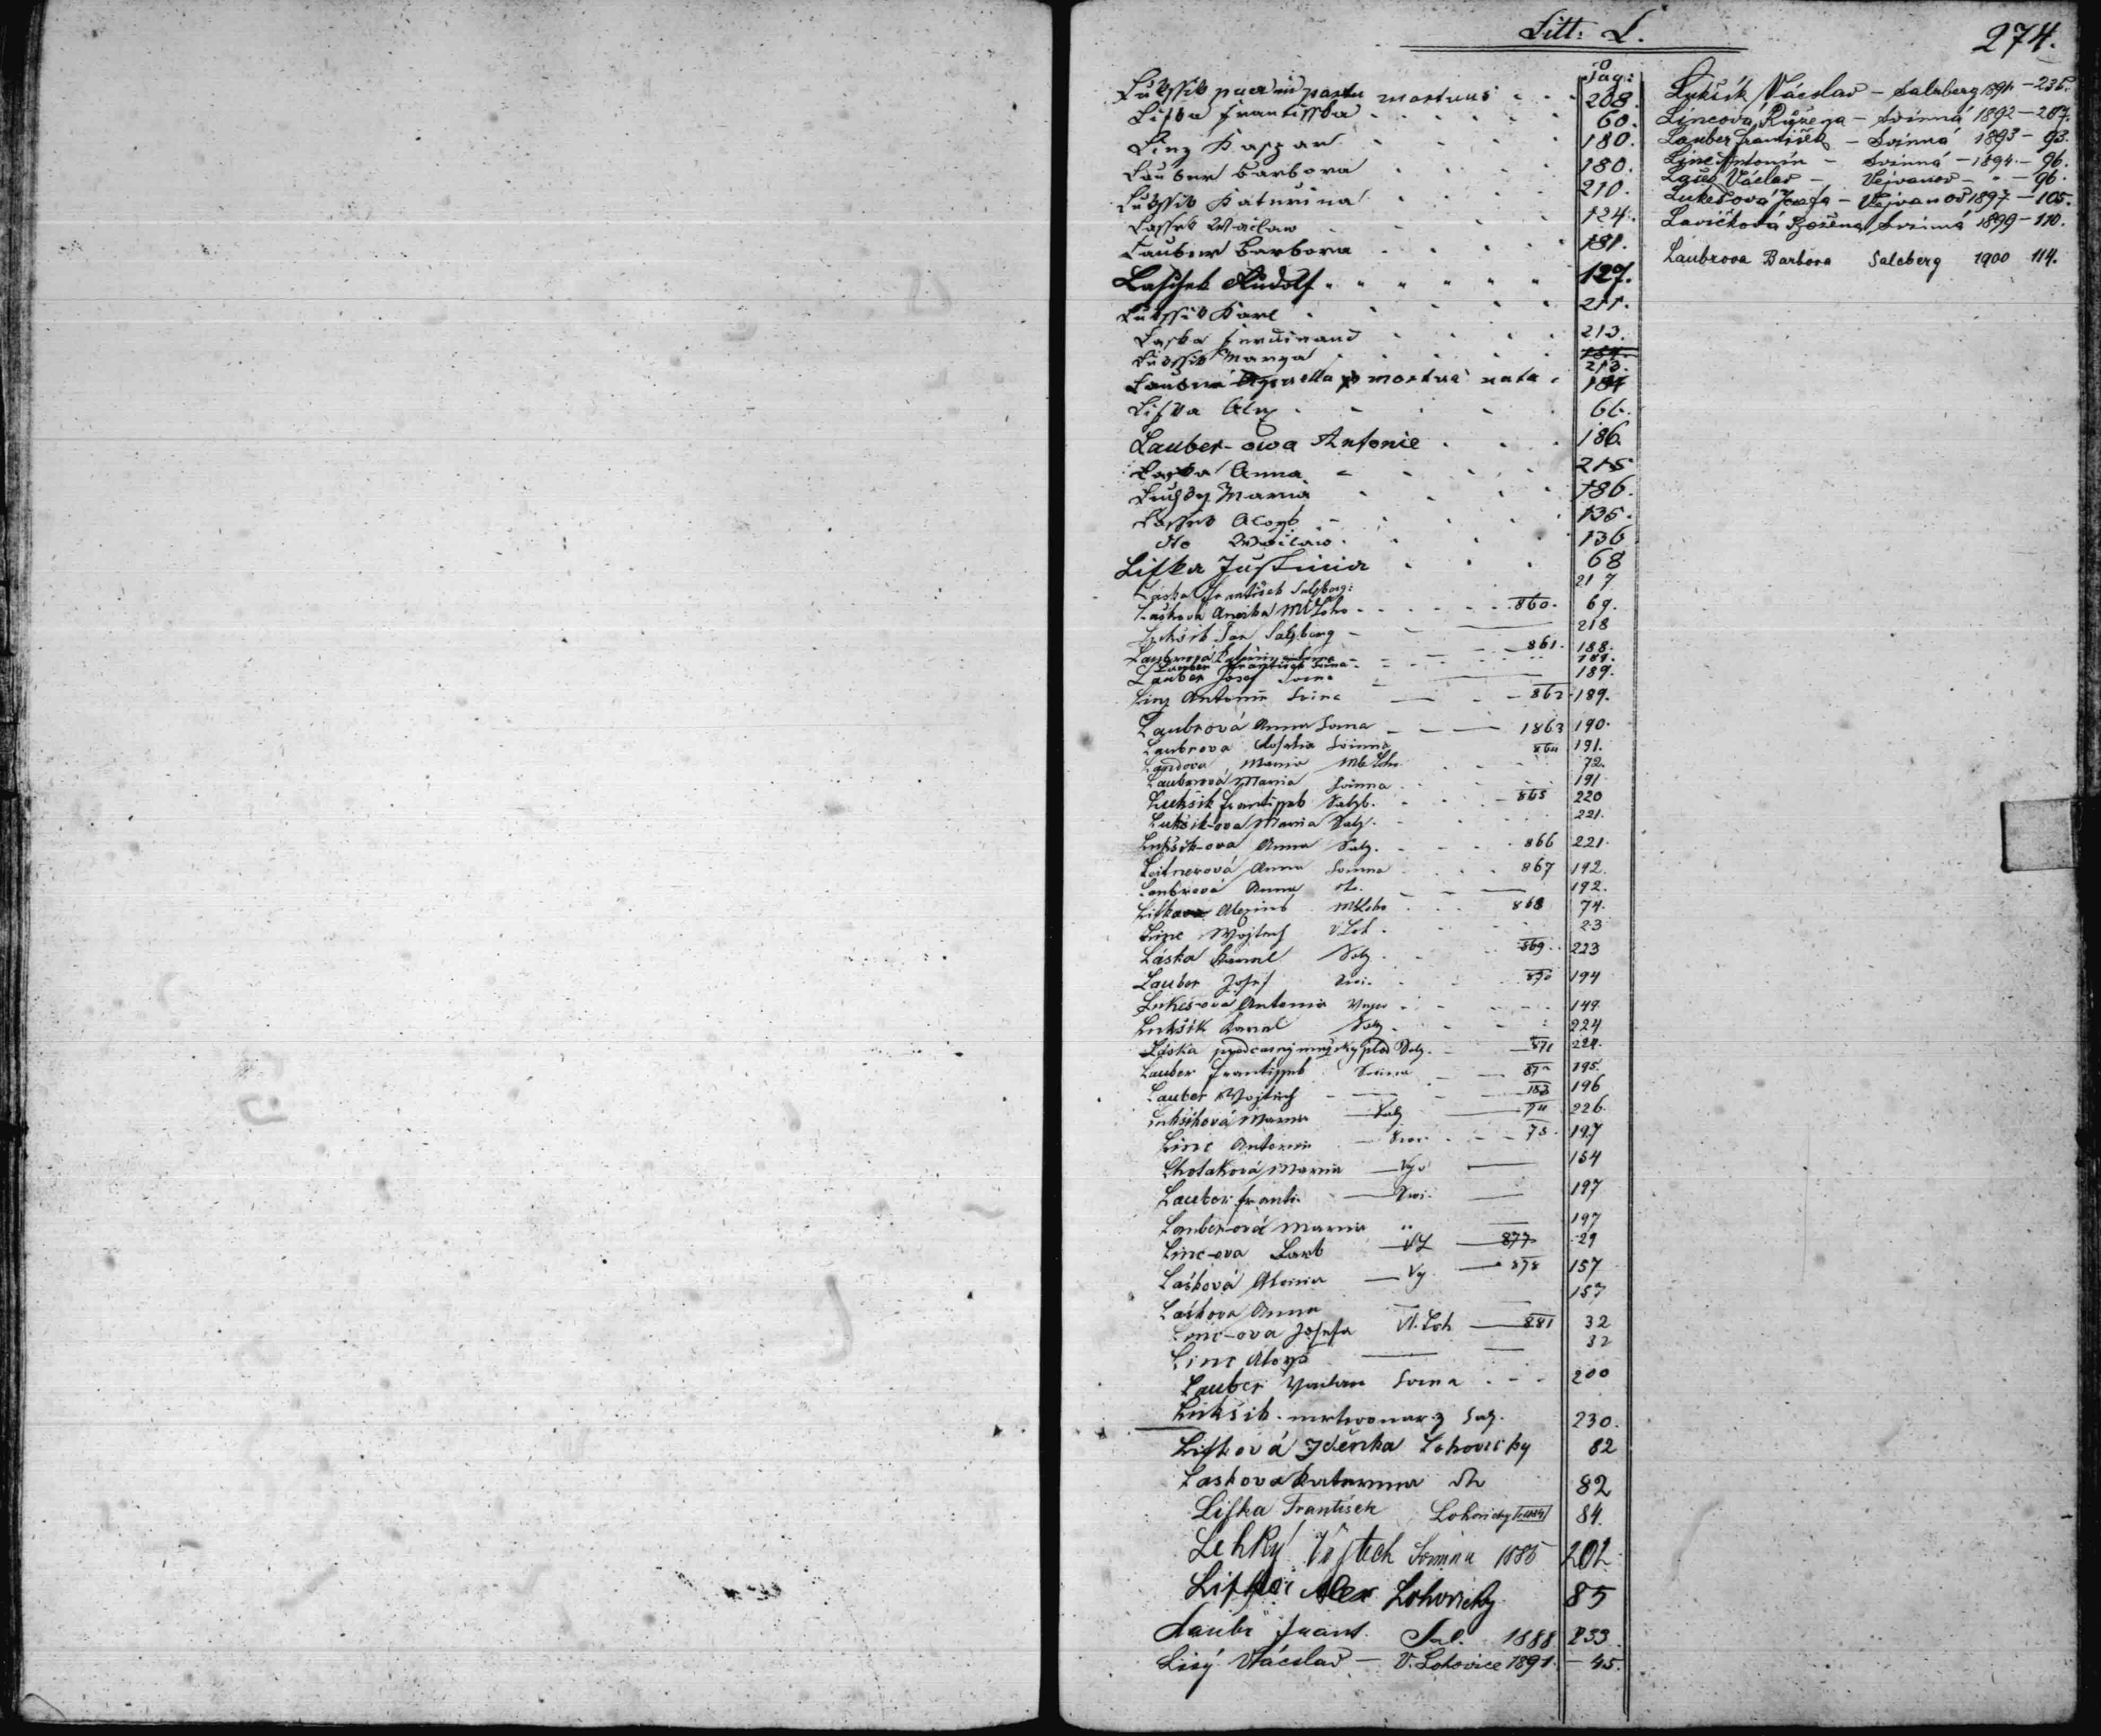 Litt: L.
274.
Pag:
Lukssik puer in partu mortuus 208.
Lifka Frantisska 60.
Linz Kaspar 180.
Lauber Barbora 180.
Lukssik Katarina 210.
Lassek Waclaw 124.
Lauber Barbora 181.
Laschek Rudolf 127.
Lukssik Karl 211.
Laska Ferdinand 213.
Lukssik Marya 213.
mortua nata 184
Lifka Aloys 66.
Lauber-owa Antonie 186.
Laska Anna 215
Maria 186.
Aloys 135.
dto Waclaw 136
Lifka Justina 68
Láska František Salzberg: 217
Lašková Anežka M Loho 860. 69.
Lukšik Jan Salzberg 218
Laubrová 861. 188.
Lauber František Svina 189.
Lauber Josef Svina 189.
Linz Antonin Svina 862 189.
Laubrová Anna Svina 1863 190.
Laubrova Rosalia Svinna 864 191.
Landova Maria Mb Loho 72.
Lauberová Maria Svinna 191
Lukšik Frantissek Salzb. 865 220
Lukšik-ova Maria Salz. 221.
Lukšik-ova Anna Salz. 866 221
Leitnerová Anna Svinna 867 192.
Laubrová Anna dto. 192.
Lifka Alexius M Loho 868 74.
Linc Wojtech V Loh. 23
Láska Karel Salz. 869 223
Lauber Josef Svi. 870 194
Lukeš-ová Antonia Vejw 149
Lukšik Karel Salz. 224
Láska předcasný mužský plod Salz. 871 224.
Lauber Frantissek Svinna 872 195.
Lauber Wojtěch 196
Lukšiková Maria Salz 74 226.
Linc Antonin Svi. 75. 197
Lhotaková Maria Vyv 154
Lauber Franti. Svi. 197
Lauber-ová Maria " 197
Linc-ova Barb VL 877 29
Lašková Aloisia Vy 878 157
Laškova Anna 157
Linc-ova Josefa Vl. Loh 881 32
Linc Aloys 32
Lauber Vaclav Svina 200
Lukšik mrtvonar. Salz. 230.
Lifková Zděnka Lohovičky 82
Laskova Katerina dto 82
Lifka František Lohovičky 84.
Lehký Vojtěch Svinna 1885 202
Lifka Alex Lohovičky 85
Laubr Frant. Sal. 1888 233.
Lisý Václav – V. Lohovice 1891. – 45.
Lukšík Václav – Salzberg 1891 – 236.
Lincová Růžena – Svinná 1892 – 207.
Lauber František – Svinná 1893 – 93.
Linc Antonín – Svinná – 1894 – 96.
Lašek Václav – Vejvanov – " – 96.
Lukešová Josefa – Vejvanov 1897 – 105.
Lavičková Božena Svinná 1899 – 110.
Laubrova Barbora Salzberg 1900 114.